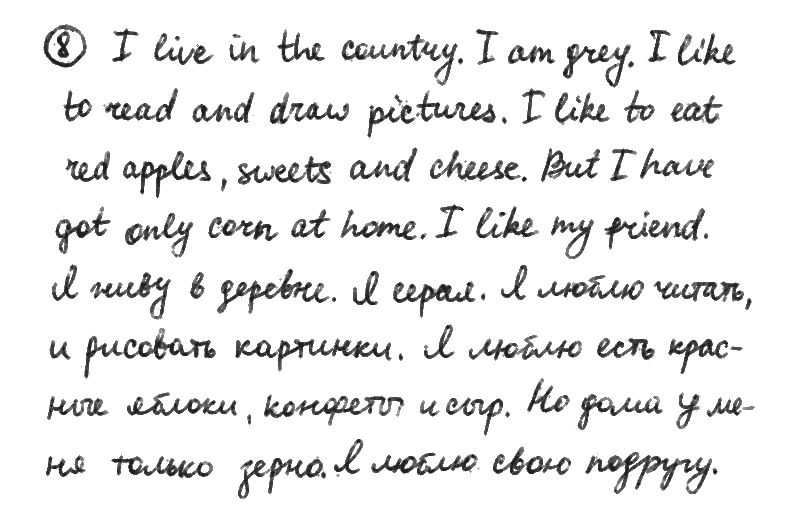 ⑧ I live in the country. I am grey. I like
to read and draw pictures. I like to eat
red apples, sweets and cheese. But I have
got only corn at home. I like my friend.
Я живу в деревне. Я серая. Я люблю читать,
и рисовать картинки. Я люблю есть крас-
ные яблоки, конфеты и сыр. Но дома у ме-
ня только зерно. Я люблю свою подругу.